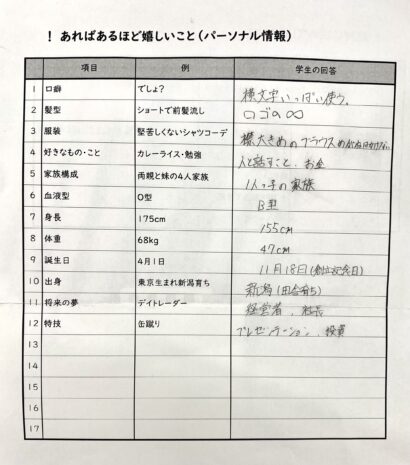 ！ あればあるほど嬉しいこと（パーソナル情報）
項目 例 学生の回答
1 口癖 でしょ？ 横文字いっぱい使う。
2 髪型 ショートで前髪流し ロゴの∞
3 服装 堅苦しくないシャツコーデ 襟大きめのブラウス
4 好きなもの・こと カレーライス・勉強 人と話すこと、お金
5 家族構成 両親と妹の4人家族 1人っ子の家族
6 血液型 O型 B型
7 身長 175cm 155cm
8 体重 68kg 47cm
9 誕生日 4月1日 11月18日(創立記念日)
10 出身 東京生まれ新潟育ち 新潟(田舎育ち)
11 将来の夢 デイトレーダー 経営者、社長
12 特技 缶蹴り プレゼンテーション、投資
13
14
15
16
17